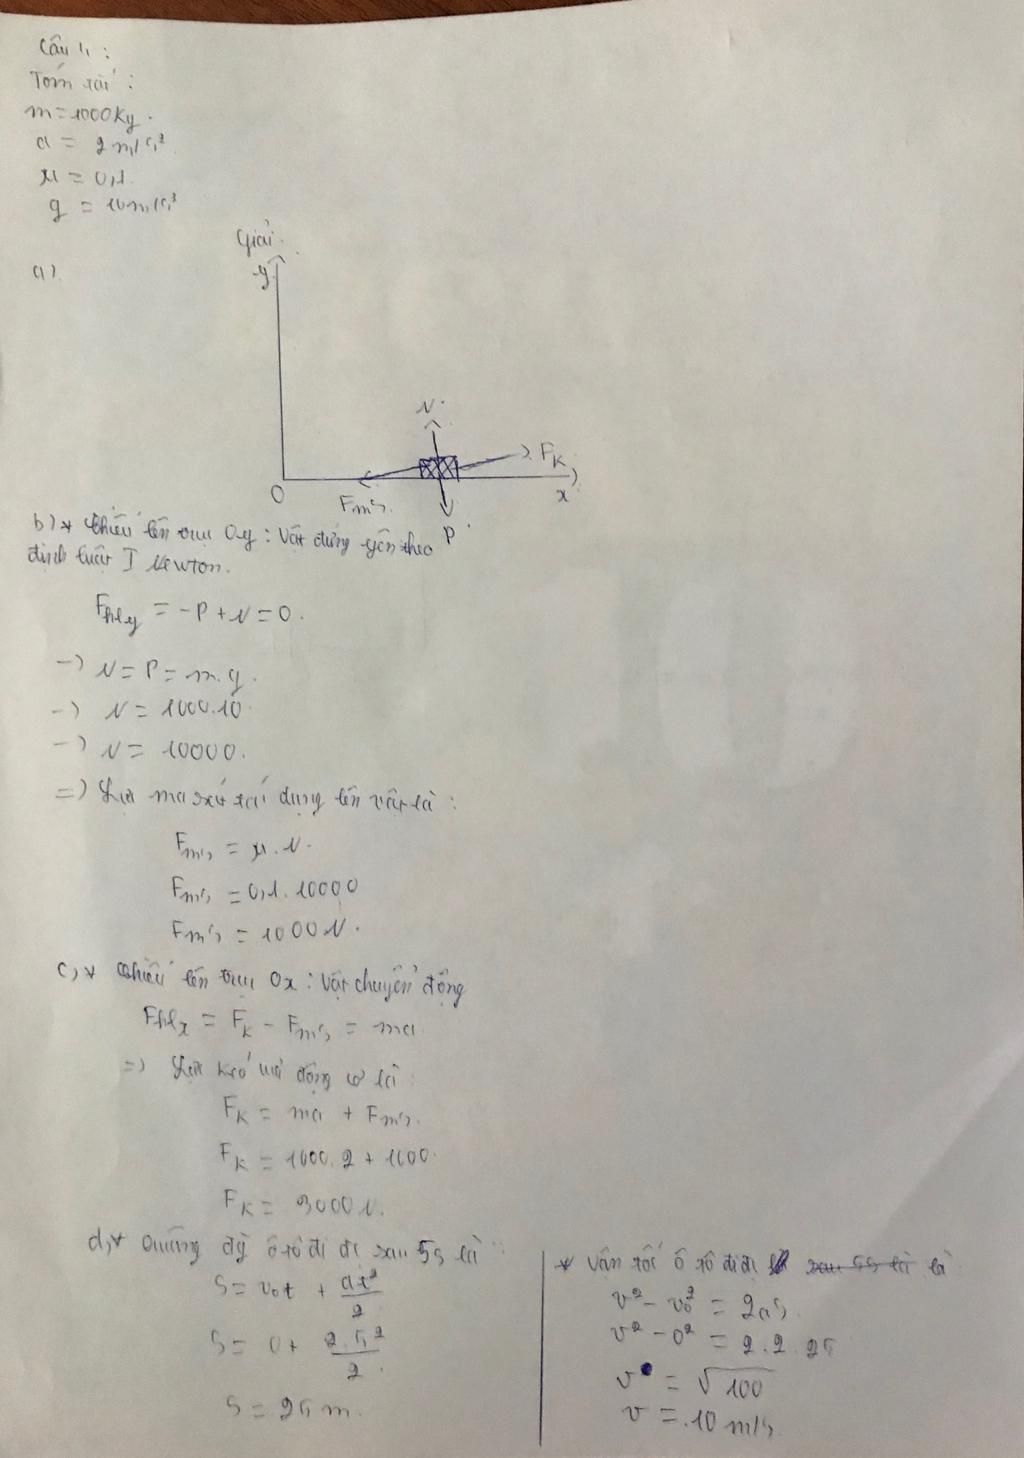 Câu 1 :
Tóm tắt :
m = 1000 Kg.
a = 2 m/s²
μ = 0,1.
g = 10 m/s²
Giải.
a).
y
N
Fk
O
Fms
x
P
b) * Chiếu lên trục Oy : Vật đứng yên theo
định luật I Newton.
Fhly = -P + N = 0.
-> N = P = m.g.
-> N = 1000.10
-> N = 10000.
=> Lực ma sát tác dụng lên vật là :
Fms = μ.N.
Fms = 0,1.10000
Fms = 1000 N.
c, * Chiếu lên trục Ox : Vật chuyển động
Fhlx = Fk - Fms = ma.
=> Lực kéo của động cơ là :
Fk = ma + Fms.
Fk = 1000.2 + 1000.
Fk = 3000 N.
d, * Quãng đg ô tô đi đc sau 5s là :
S = v₀t + at²/2
S = 0 + 2.5²/2
S = 25 m.
* Vận tốc ô tô đi đc sau 5s là là
v² - v₀² = 2as.
v² - 0² = 2.2.25
v = √100
v = 10 m/s.